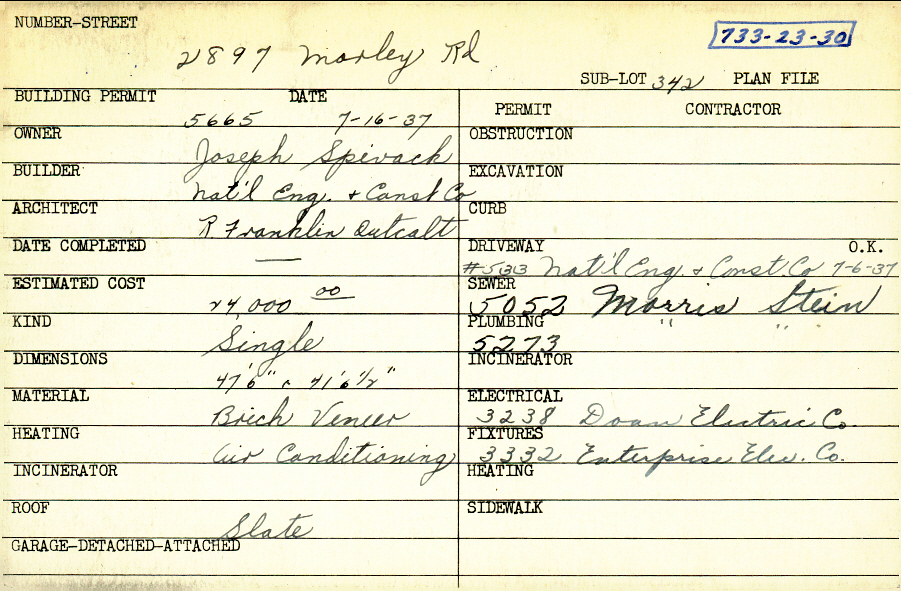 NUMBER-STREET
2897 Morley Rd
733-23-30
SUB-LOT 342 PLAN FILE
BUILDING PERMIT DATE
5665 7-16-37
PERMIT CONTRACTOR
OWNER
Joseph Spivack
BUILDER
Nat'l Eng. + Const Co
ARCHITECT
R. Franklin Outcalt
DATE COMPLETED
—
ESTIMATED COST
24,000 00
KIND
Single
DIMENSIONS
47'6" x 41'6½"
MATERIAL
Brick Veneer
HEATING
Air Conditioning
INCINERATOR
ROOF
Slate
GARAGE-DETACHED-ATTACHED
OBSTRUCTION
EXCAVATION
CURB
DRIVEWAY O.K.
Nat'l Eng. + Const. Co 7-6-37
SEWER
5052 Morris Stein
PLUMBING " "
5273
INCINERATOR
ELECTRICAL
3238 Doan Electric Co.
FIXTURES
3332 Enterprise Elec. Co.
HEATING
SIDEWALK